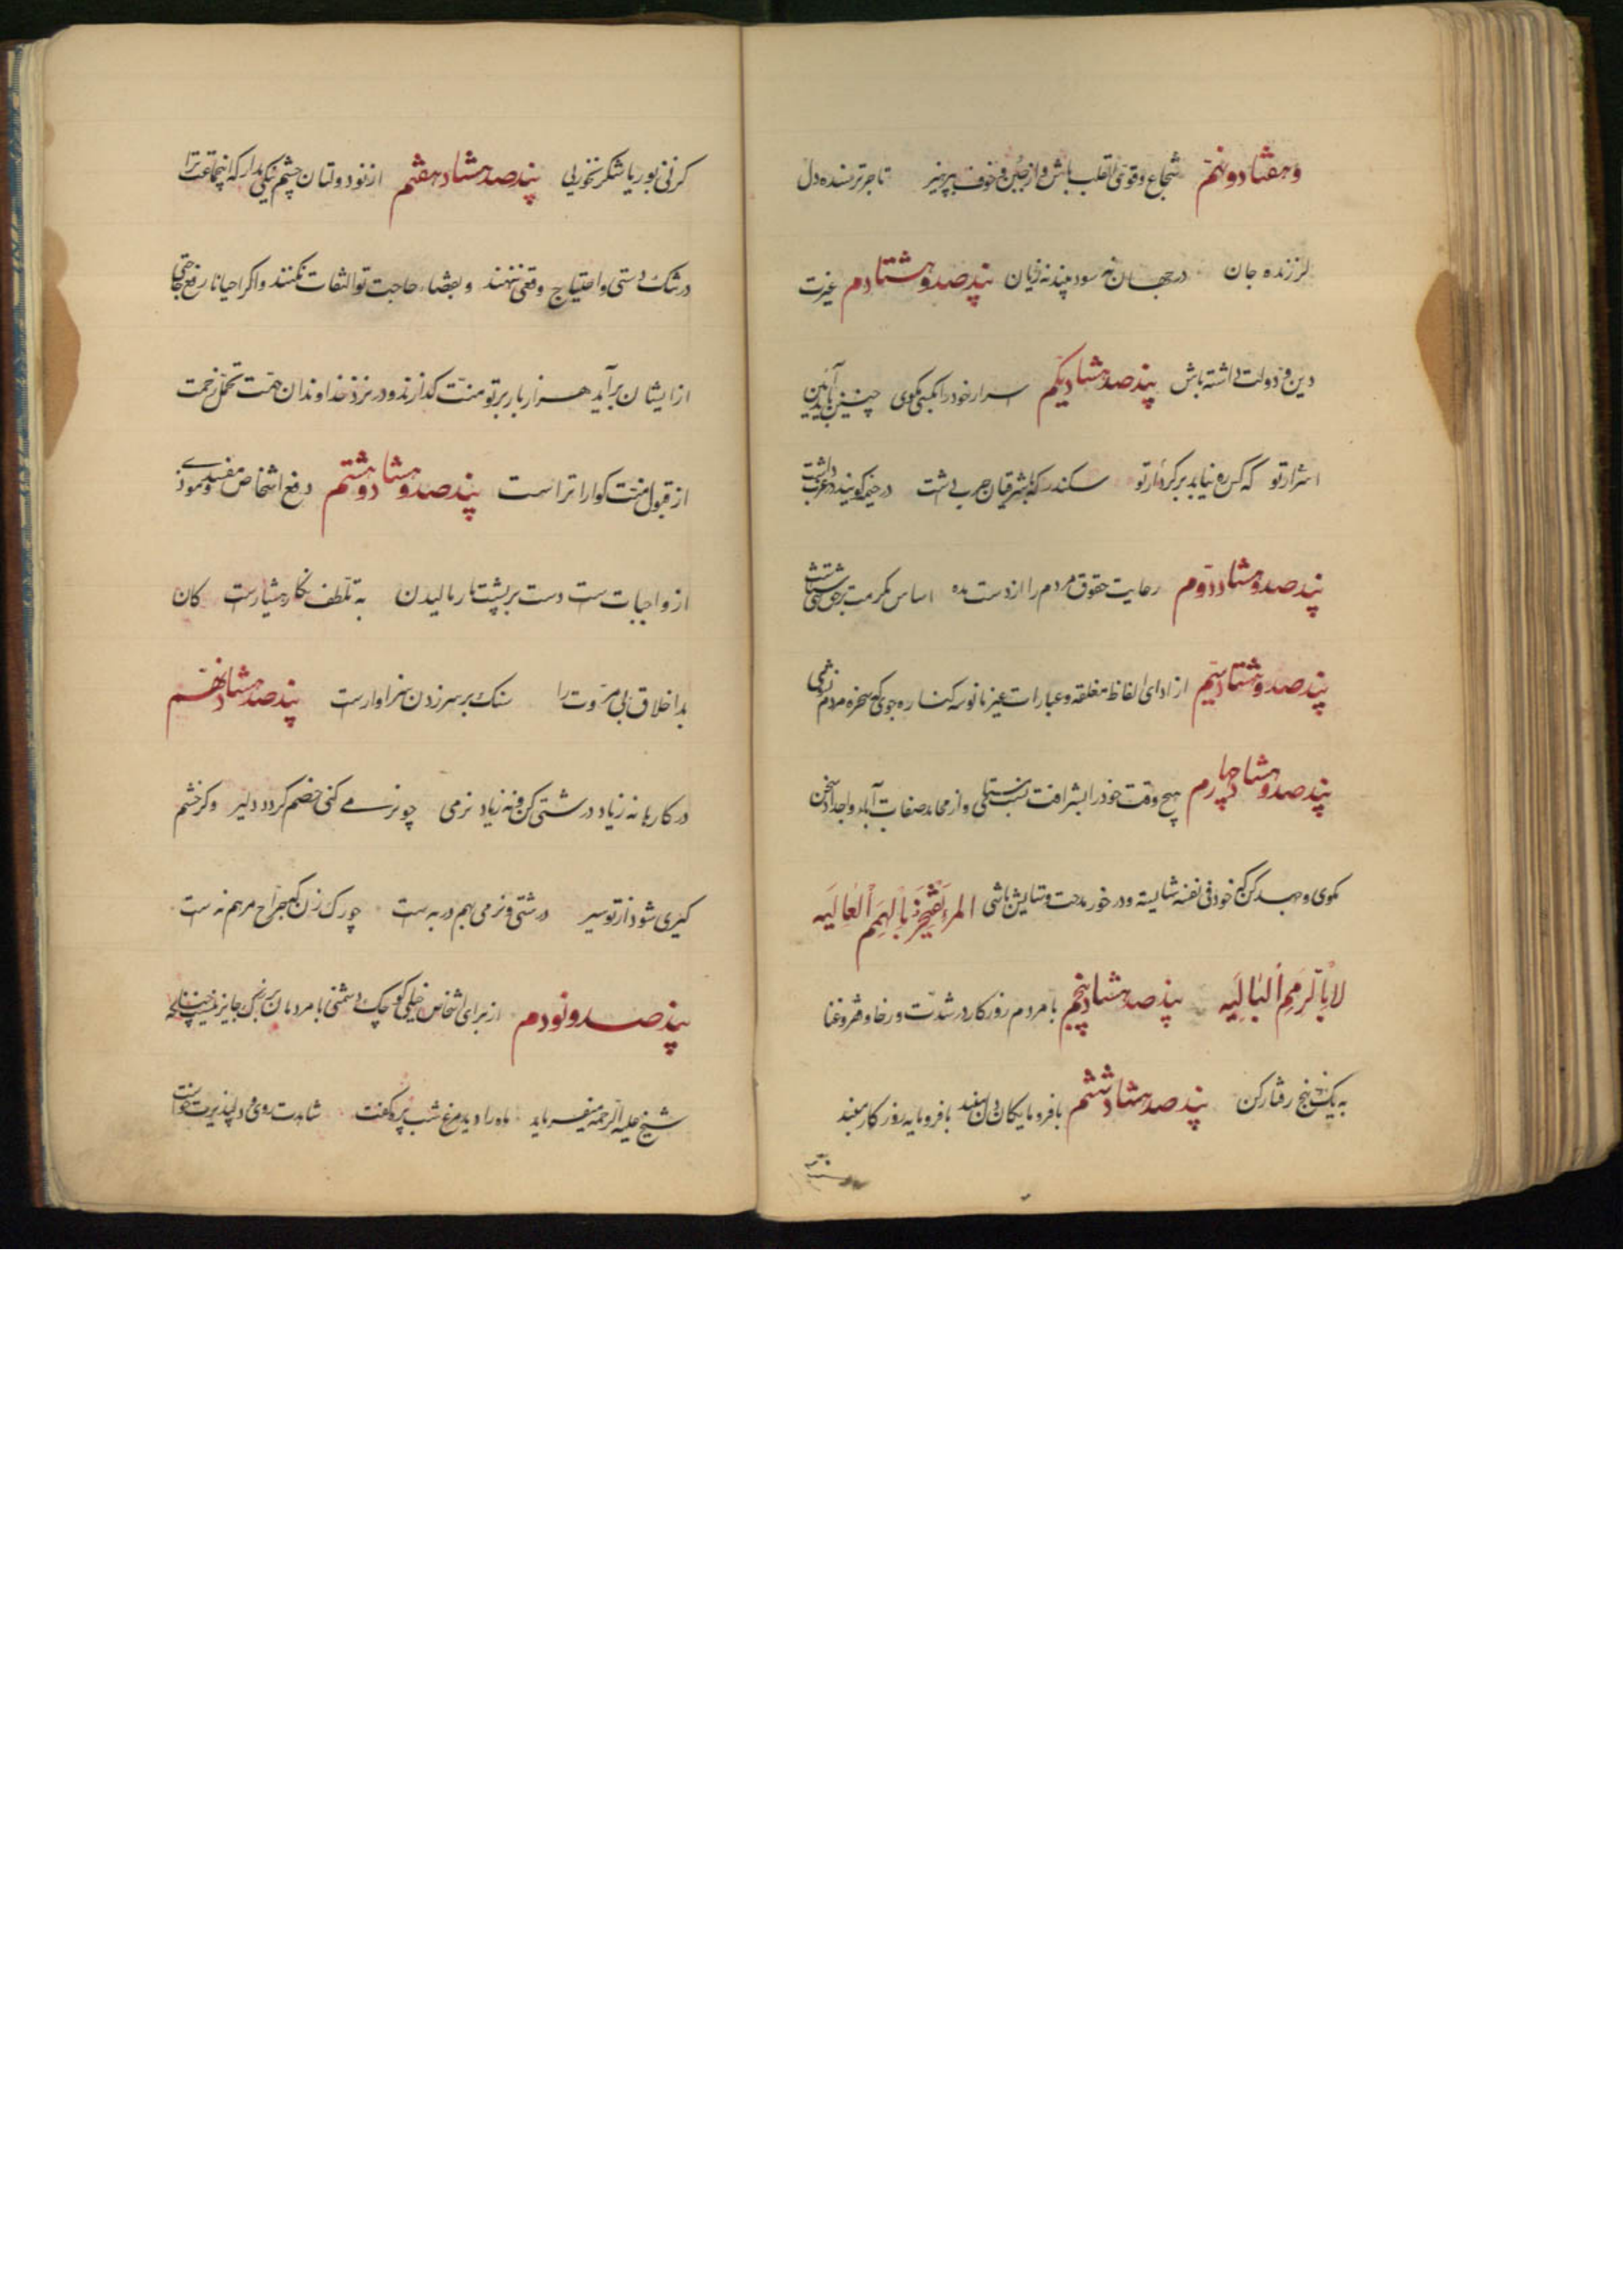 وهفتاد و نهم شجاع و قوی القلب باش و از جبن و خوف بپرهیز تاجر ترسنده دل
لرزنده جان در جهان نه سود بیند نه زیان پند صد و هشتادم غیرت
دین و دولت داشته باش پند صد هشتاد یکم اسرار خود را بکسی مگوی چنین باید آیین
اسرار تو که کس ره نیابد بر کردار تو سکندر که با شرقیان حرب داشت در خیمه گویند در غرب داشت
پند صد و هشتاد دوم رعایت حقوق مردم را از دست مده اساس مکرمت بر حق شناسیست
پند صد و هشتاد سیم از ادای الفاظ مغلقه و عبارات غیر مانوسه کناره جوی که سخره مردم نشوی
پند صد و هشتاد چهارم هیچ وقت خود را بشرافت نسب مستای و از محامد صفات آباء و اجداد سخن
مگوی و جهد کن که خود فی نفسه شایسته و در خور مدحت و ستایش باشی المرء یفتخر بالهمم العالیه
لا بالرمم البالیه پند صد هشتاد پنجم با مردم روزگار در شدت و رخا و فقر و غنا
به یک نهج رفتار کن پند صد هشتاد ششم با فرومایگان دل مبند با فرومایه روزگار مبند
کز نی بوریا شکر نخوری پند صد هشتاد هفتم از نودولتان چشم نیکی مدار که انجماعت ترا
در تنگ دستی و احتیاج وقعی ننهند و بقضاء حاجت تو التفات نکنند و اگر احیانا رفع حاجتی
از ایشان برآید هزار بار بر تو منت گذارند و در نزد خداوندان همت تحمل زحمت
از قبول منت گواراتر است پند صد و هشتاد و هشتم دفع اشخاص مفسد و موذی
از واجبات است دست بر پشت مار مالیدن به تلطف نه کار هشیارست کان
بد اخلاق بی مروت را سنک بر سر زدن سزاوارست پند صد هشتاد نهم
در کارها نه زیاد درشتی کن و نه زیاد نرمی چو نرمی کنی خصم گردد دلیر وگر خشم
گیری شود از تو سیر درشتی و نرمی بهم در به است چو رگ زن که جراح و مرهم نه است
پند صد و نودم از برای اشخاص خیلی کوچک دشمنی با مردمان بزرگ جایز نیست چنانکه
شیخ علیه الرحمه میفرماید ماه را دید مرغ شب پره گفت شاهدت روی و دلپذیرت خوست